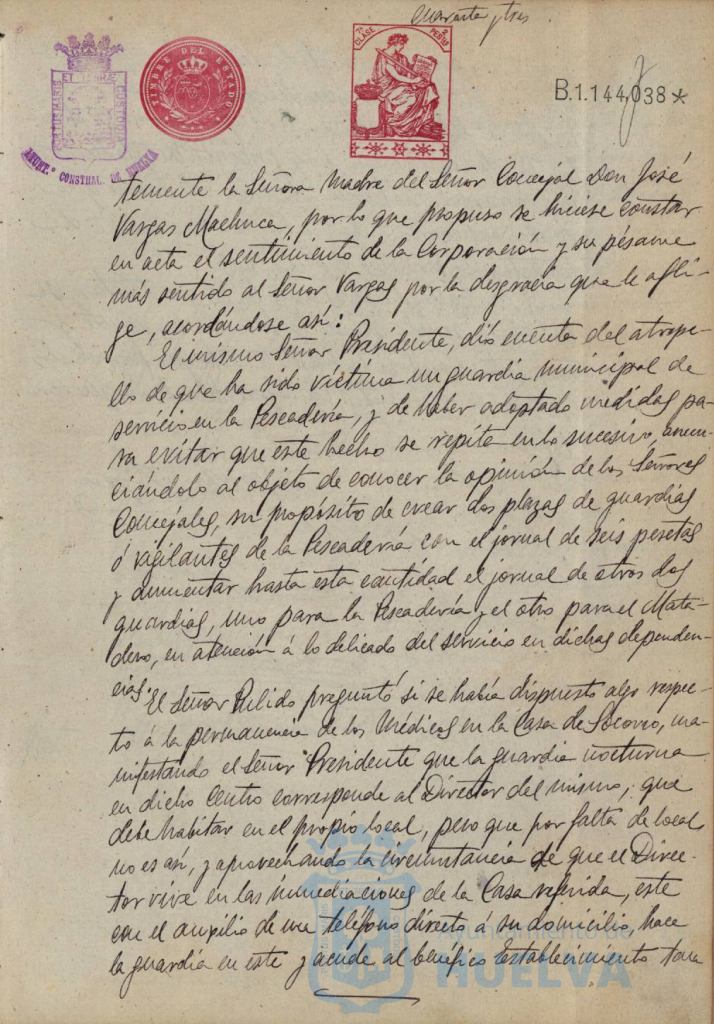 Cuarenta y tres
7ª CLASE
2 PESETAS
TIMBRE DEL ESTADO
B.1.144,038*
AYUNT.º CONSTNAL. DE HUELVA
temente la Señora madre del Señor Concejal Don José
Vargas Machuca, por lo que propuso se hiciese constar
en acta el sentimiento de la Corporación y su pésame
más sentido al Señor Vargas por la desgracia que le afli-
ge, acordándose así:
El mismo Señor Presidente, dió cuenta del atrope-
llo de que ha sido víctima un guardia municipal de
servicio en la Pescadería, y de haber adoptado medidas pa-
ra evitar que este hecho se repita en lo sucesivo, anun-
ciándolo al objeto de conocer la opinión de los Señores
Concejales, su propósito de crear dos plazas de guardias
ó vigilantes de la Pescadería con el jornal de seis pesetas
y aumentar hasta esta cantidad el jornal de otros dos
guardias, uno para la Pescadería y el otro para el Mata-
dero, en atención á lo delicado del servicio en dichas dependen-
cias.
El Señor Pulido preguntó si se había dispuesto algo respec-
to á la permanencia de los Médicos en la Casa de Socorro, ma-
nifestando el Señor Presidente que la guardia nocturna
en dicho Centro corresponde al Director del mismo, que
debe habitar en el propio local, pero que por falta de local
no es así, y aprovechando la circunstancia de que el Direc-
tor vive en las inmediaciones de la Casa referida, este
con el auxilio de un teléfono directo á su domicilio, hace
la guardia en este y acude al benéfico Establecimiento tan
HUELVA